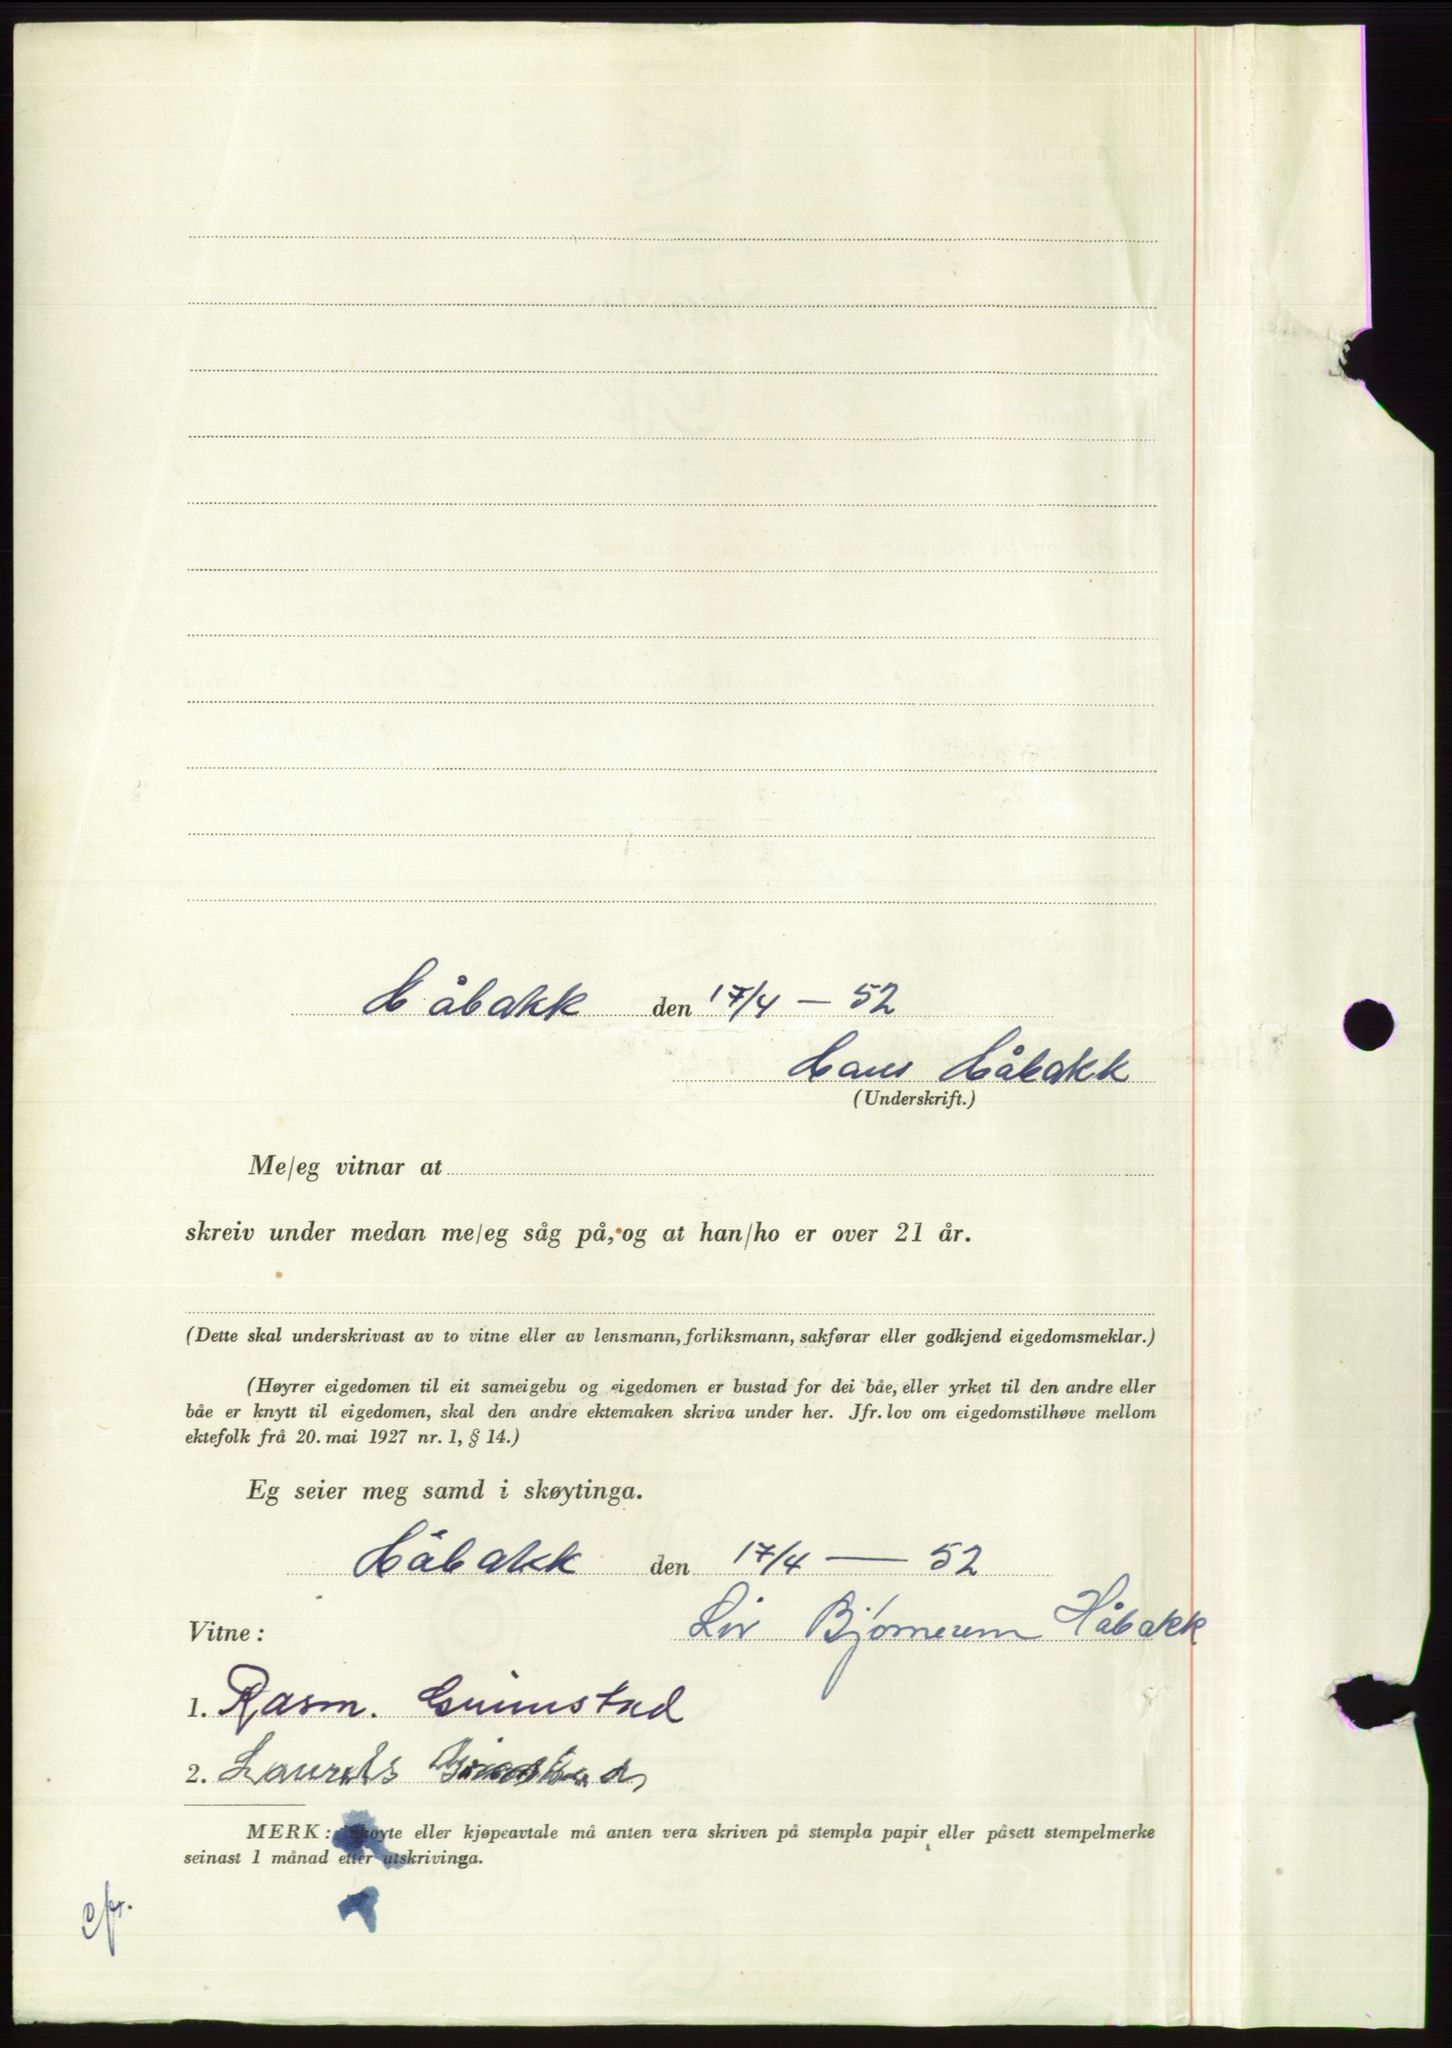 Håbakk den 17/4 — 52
Hans Håbakk
(Underskrift.)
Me/eg vitnar at
skreiv under medan me/eg såg på, og at han/ho er over 21 år.
(Dette skal underskrivast av to vitne eller av lensmann, forliksmann, sakførar eller godkjend eigedomsmeklar.)
(Høyrer eigedomen til eit sameigebu og eigedomen er bustad for dei båe, eller yrket til den andre eller
båe er knytt til eigedomen, skal den andre ektemaken skriva under her. Jfr. lov om eigedomstilhøve mellom
ektefolk frå 20. mai 1927 nr. 1, § 14.)
Eg seier meg samd i skøytinga.
Håbakk den 17/4 — 52
Liv Bjørnerem Håbakk
Vitne:
1. Rasm. Grimstad
2. Laurits Grimstad
MERK: Skøyte eller kjøpeavtale må anten vera skriven på stempla papir eller påsett stempelmerke
seinast 1 månad etter utskrivinga.